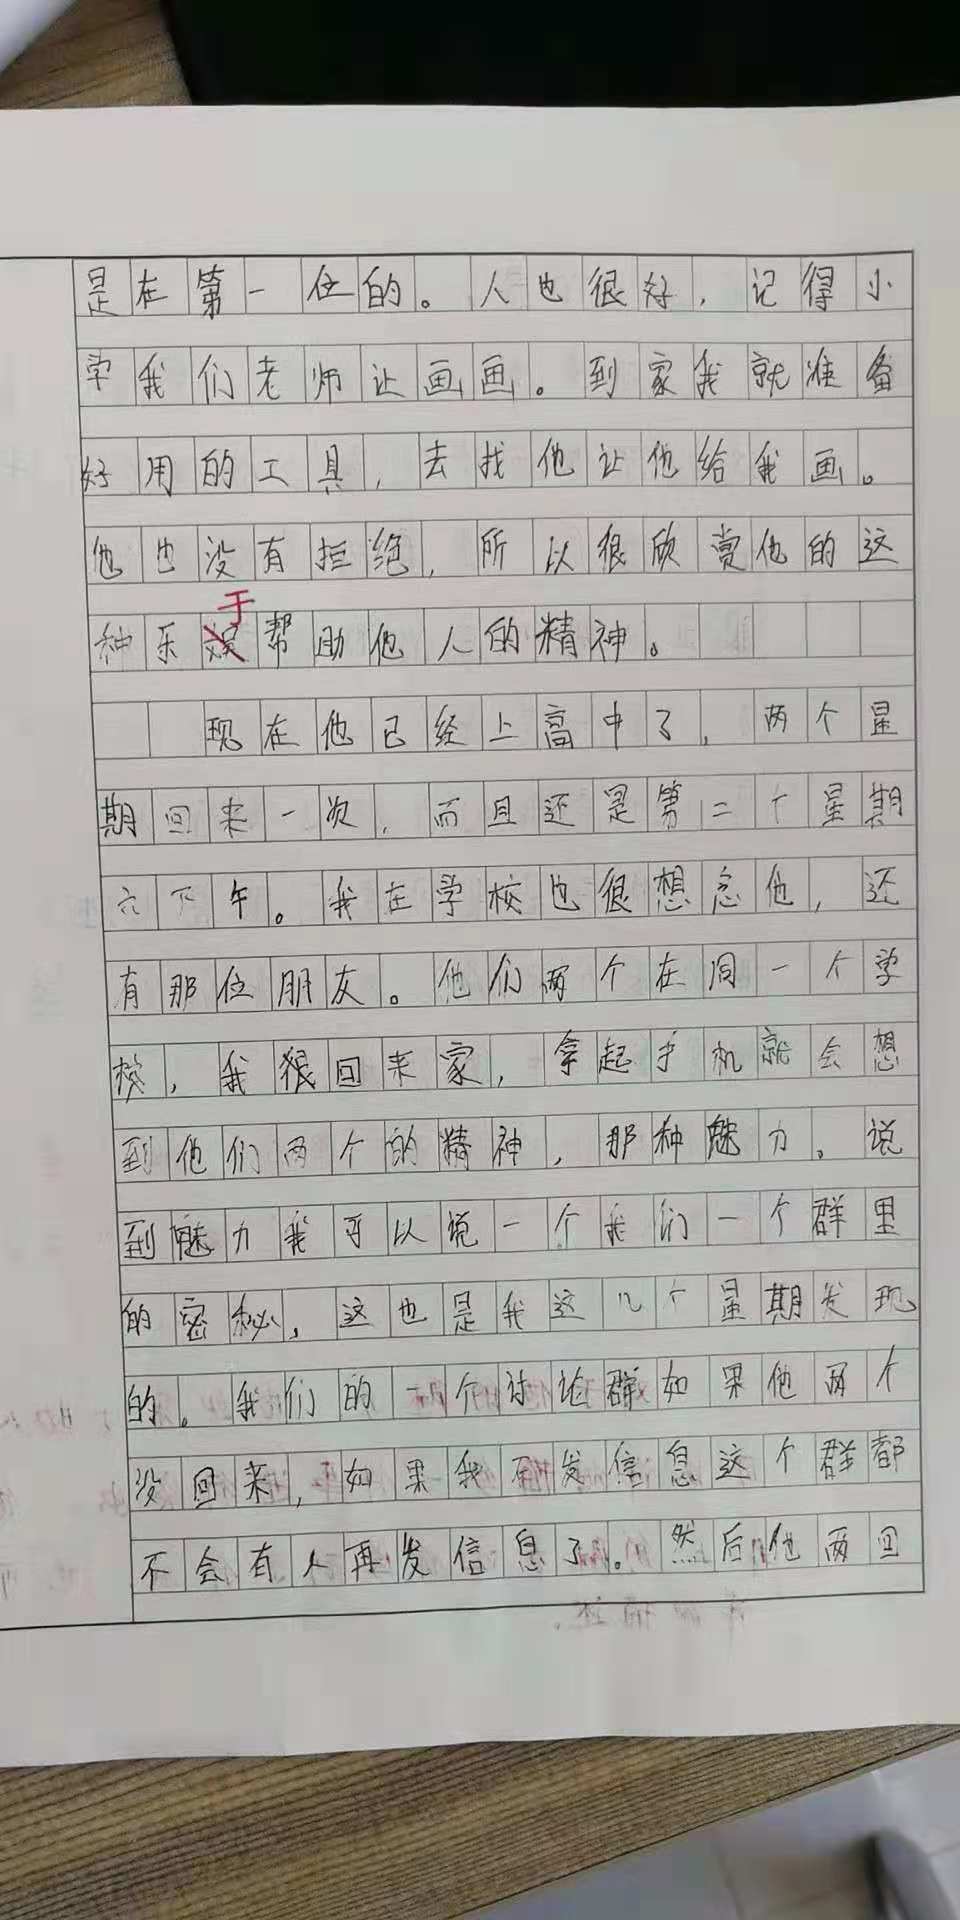 是在第一位的。人也很好,记得小
学我们老师让画画。到家我就准备
好用的工具,去找他让他给我画。
他也没有拒绝,所以很欣赏他的这
于
种乐娱帮助他人的精神。
现在他已经上高中了,两个星
期回来一次,而且还是第二个星期
六下午。我在学校也很想念他,还
有那位朋友。他们两个在同一个学
校,我狠回来家,拿起手机就会想
到他们两个的精神,那种魅力。说
到魅力我可以说一个我们一个群里
的密秘,这也是我这几个星期发现
的。我们的一个讨论群如果他两个
没回来,如果我不发信息这个群都
不会有人再发信息了。然后他两回